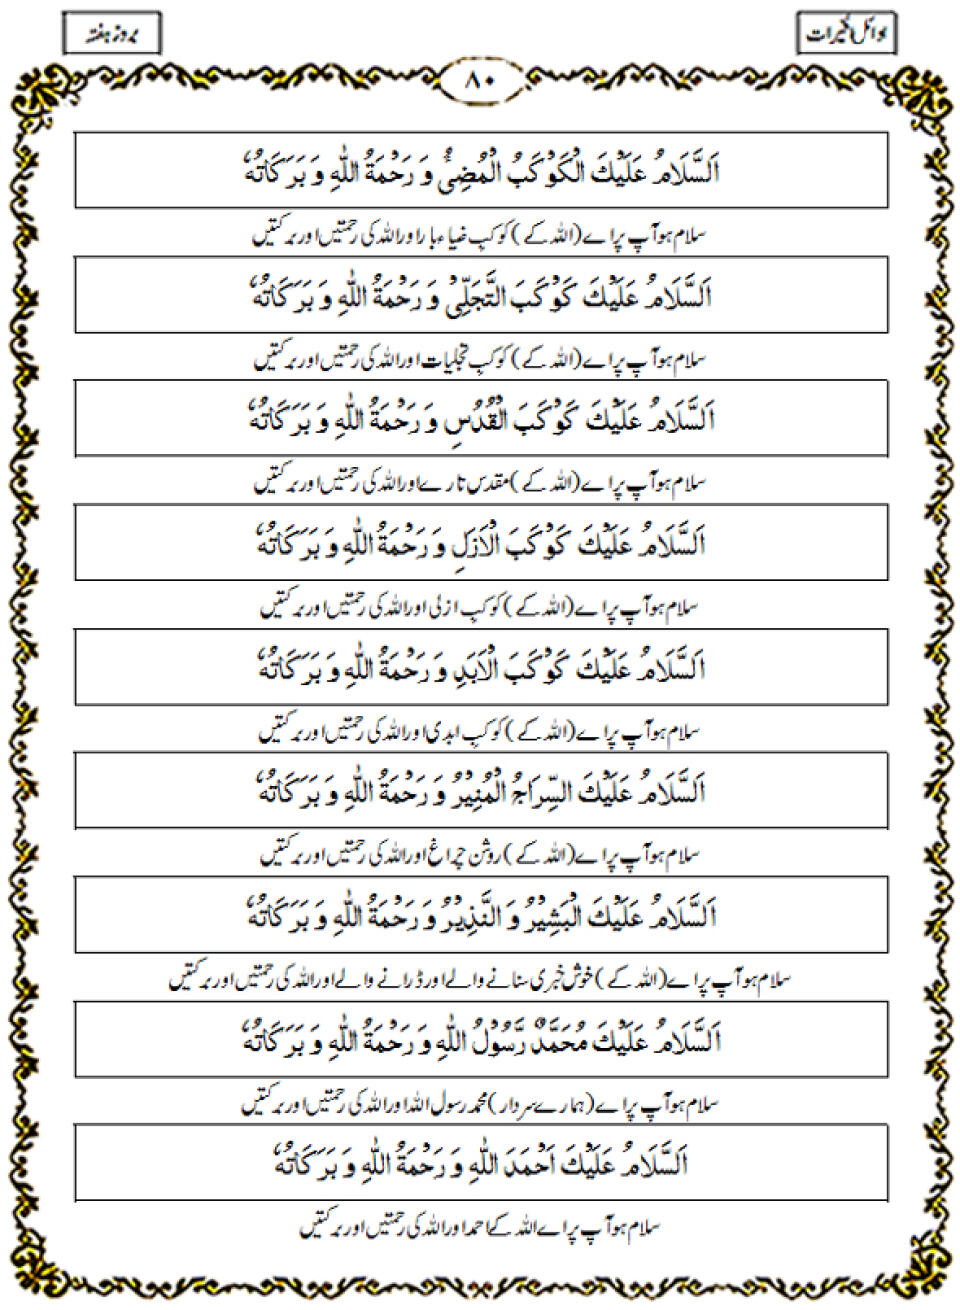 اوائل الخیرات
بروز ہفتہ
۸۰
اَلسَّلَامُ عَلَیْكَ الْکَوْکَبُ الْمُضِیْٔ وَ رَحْمَۃُ اللهِ وَ بَرَکَاتُہٗ
سلام ہو آپ پر اے (اللہ کے) کوکب ضیاء بار اور اللہ کی رحمتیں اور برکتیں
اَلسَّلَامُ عَلَیْكَ کَوْکَبَ التَّجَلِّیْ وَ رَحْمَۃُ اللهِ وَ بَرَکَاتُہٗ
سلام ہو آپ پر اے (اللہ کے) کوکبِ تجلیات اور اللہ کی رحمتیں اور برکتیں
اَلسَّلَامُ عَلَیْكَ کَوْکَبَ الْقُدُسِ وَ رَحْمَۃُ اللهِ وَ بَرَکَاتُہٗ
سلام ہو آپ پر اے (اللہ کے) مقدس تارے اور اللہ کی رحمتیں اور برکتیں
اَلسَّلَامُ عَلَیْكَ کَوْکَبَ الْاَزَلِ وَ رَحْمَۃُ اللهِ وَ بَرَکَاتُہٗ
سلام ہو آپ پر اے (اللہ کے) کوکبِ ازلی اور اللہ کی رحمتیں اور برکتیں
اَلسَّلَامُ عَلَیْكَ کَوْکَبَ الْاَبَدِ وَ رَحْمَۃُ اللهِ وَ بَرَکَاتُہٗ
سلام ہو آپ پر اے (اللہ کے) کوکبِ ابدی اور اللہ کی رحمتیں اور برکتیں
اَلسَّلَامُ عَلَیْكَ السِّرَاجُ الْمُنِیْرُ وَ رَحْمَۃُ اللهِ وَ بَرَکَاتُہٗ
سلام ہو آپ پر اے (اللہ کے) روشن چراغ اور اللہ کی رحمتیں اور برکتیں
اَلسَّلَامُ عَلَیْكَ الْبَشِیْرُ وَ النَّذِیْرُ وَ رَحْمَۃُ اللهِ وَ بَرَکَاتُہٗ
سلام ہو آپ پر اے (اللہ کے) خوش خبری سنانے والے اور ڈرانے والے اور اللہ کی رحمتیں اور برکتیں
اَلسَّلَامُ عَلَیْكَ مُحَمَّدٌ رَّسُوْلُ اللهِ وَ رَحْمَۃُ اللهِ وَ بَرَکَاتُہٗ
سلام ہو آپ پر اے (ہمارے سردار) محمد رسول اللہ اور اللہ کی رحمتیں اور برکتیں
اَلسَّلَامُ عَلَیْكَ اَحْمَدَ اللهِ وَ رَحْمَۃُ اللهِ وَ بَرَکَاتُہٗ
سلام ہو آپ پر اے اللہ کے احمد اور اللہ کی رحمتیں اور برکتیں